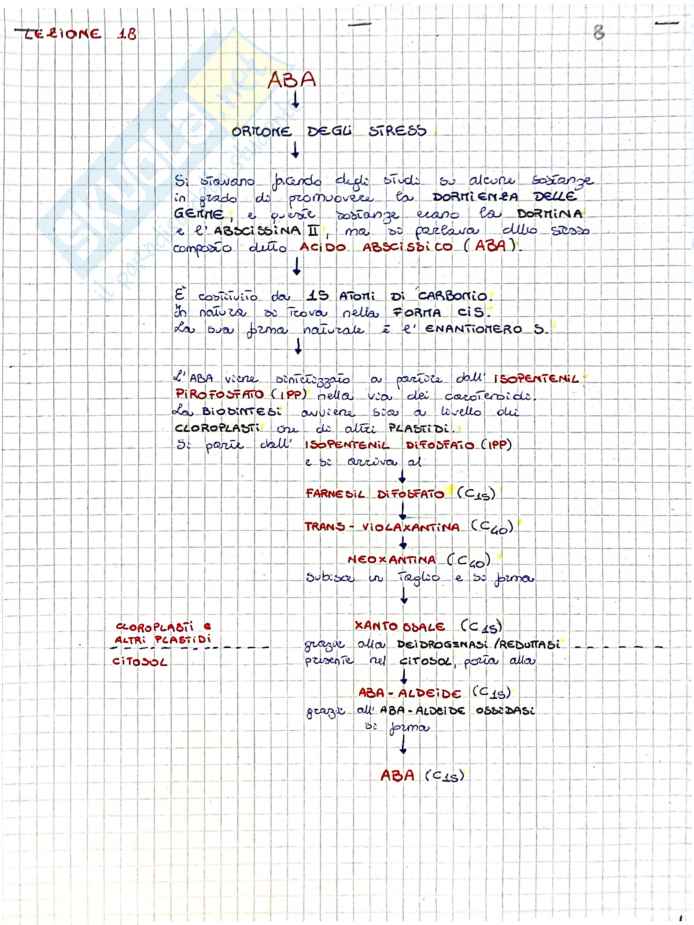 LEZIONE 18
8
ABA
ORMONE DEGLI STRESS
Si stavano facendo degli studi su alcune sostanze
in grado di promuovere la DORMIENZA DELLE
GEMME, e queste sostanze erano la DORMINA
e l'ABSCISSINA II, ma si parlava dello stesso
composto detto ACIDO ABSCISSICO (ABA).
È costituito da 15 ATOMI DI CARBONIO.
In natura si trova nella FORMA CIS.
La sua forma naturale è l'ENANTIOMERO S.
L'ABA viene sintetizzato a partire dall'ISOPENTENIL
PIROFOSFATO (IPP) nella via dei carotenoidi.
La BIOSINTESI avviene sia a livello dei
CLOROPLASTI che di altri PLASTIDI.
Si parte dall'ISOPENTENIL DIFOSFATO (IPP)
e si arriva al
FARNESIL DIFOSFATO (C15)
TRANS-VIOLAXANTINA (C40)
NEOXANTINA (C40)
subisce un taglio e si forma
XANTOSSALE (C15)
CLOROPLASTI e
ALTRI PLASTIDI
grazie alla DEIDROGENASI/REDUTTASI
CITOSOL
presente nel CITOSOL, porta alla
ABA-ALDEIDE (C15)
grazie all'ABA-ALDEIDE OSSIDASI
si forma
ABA (C15)